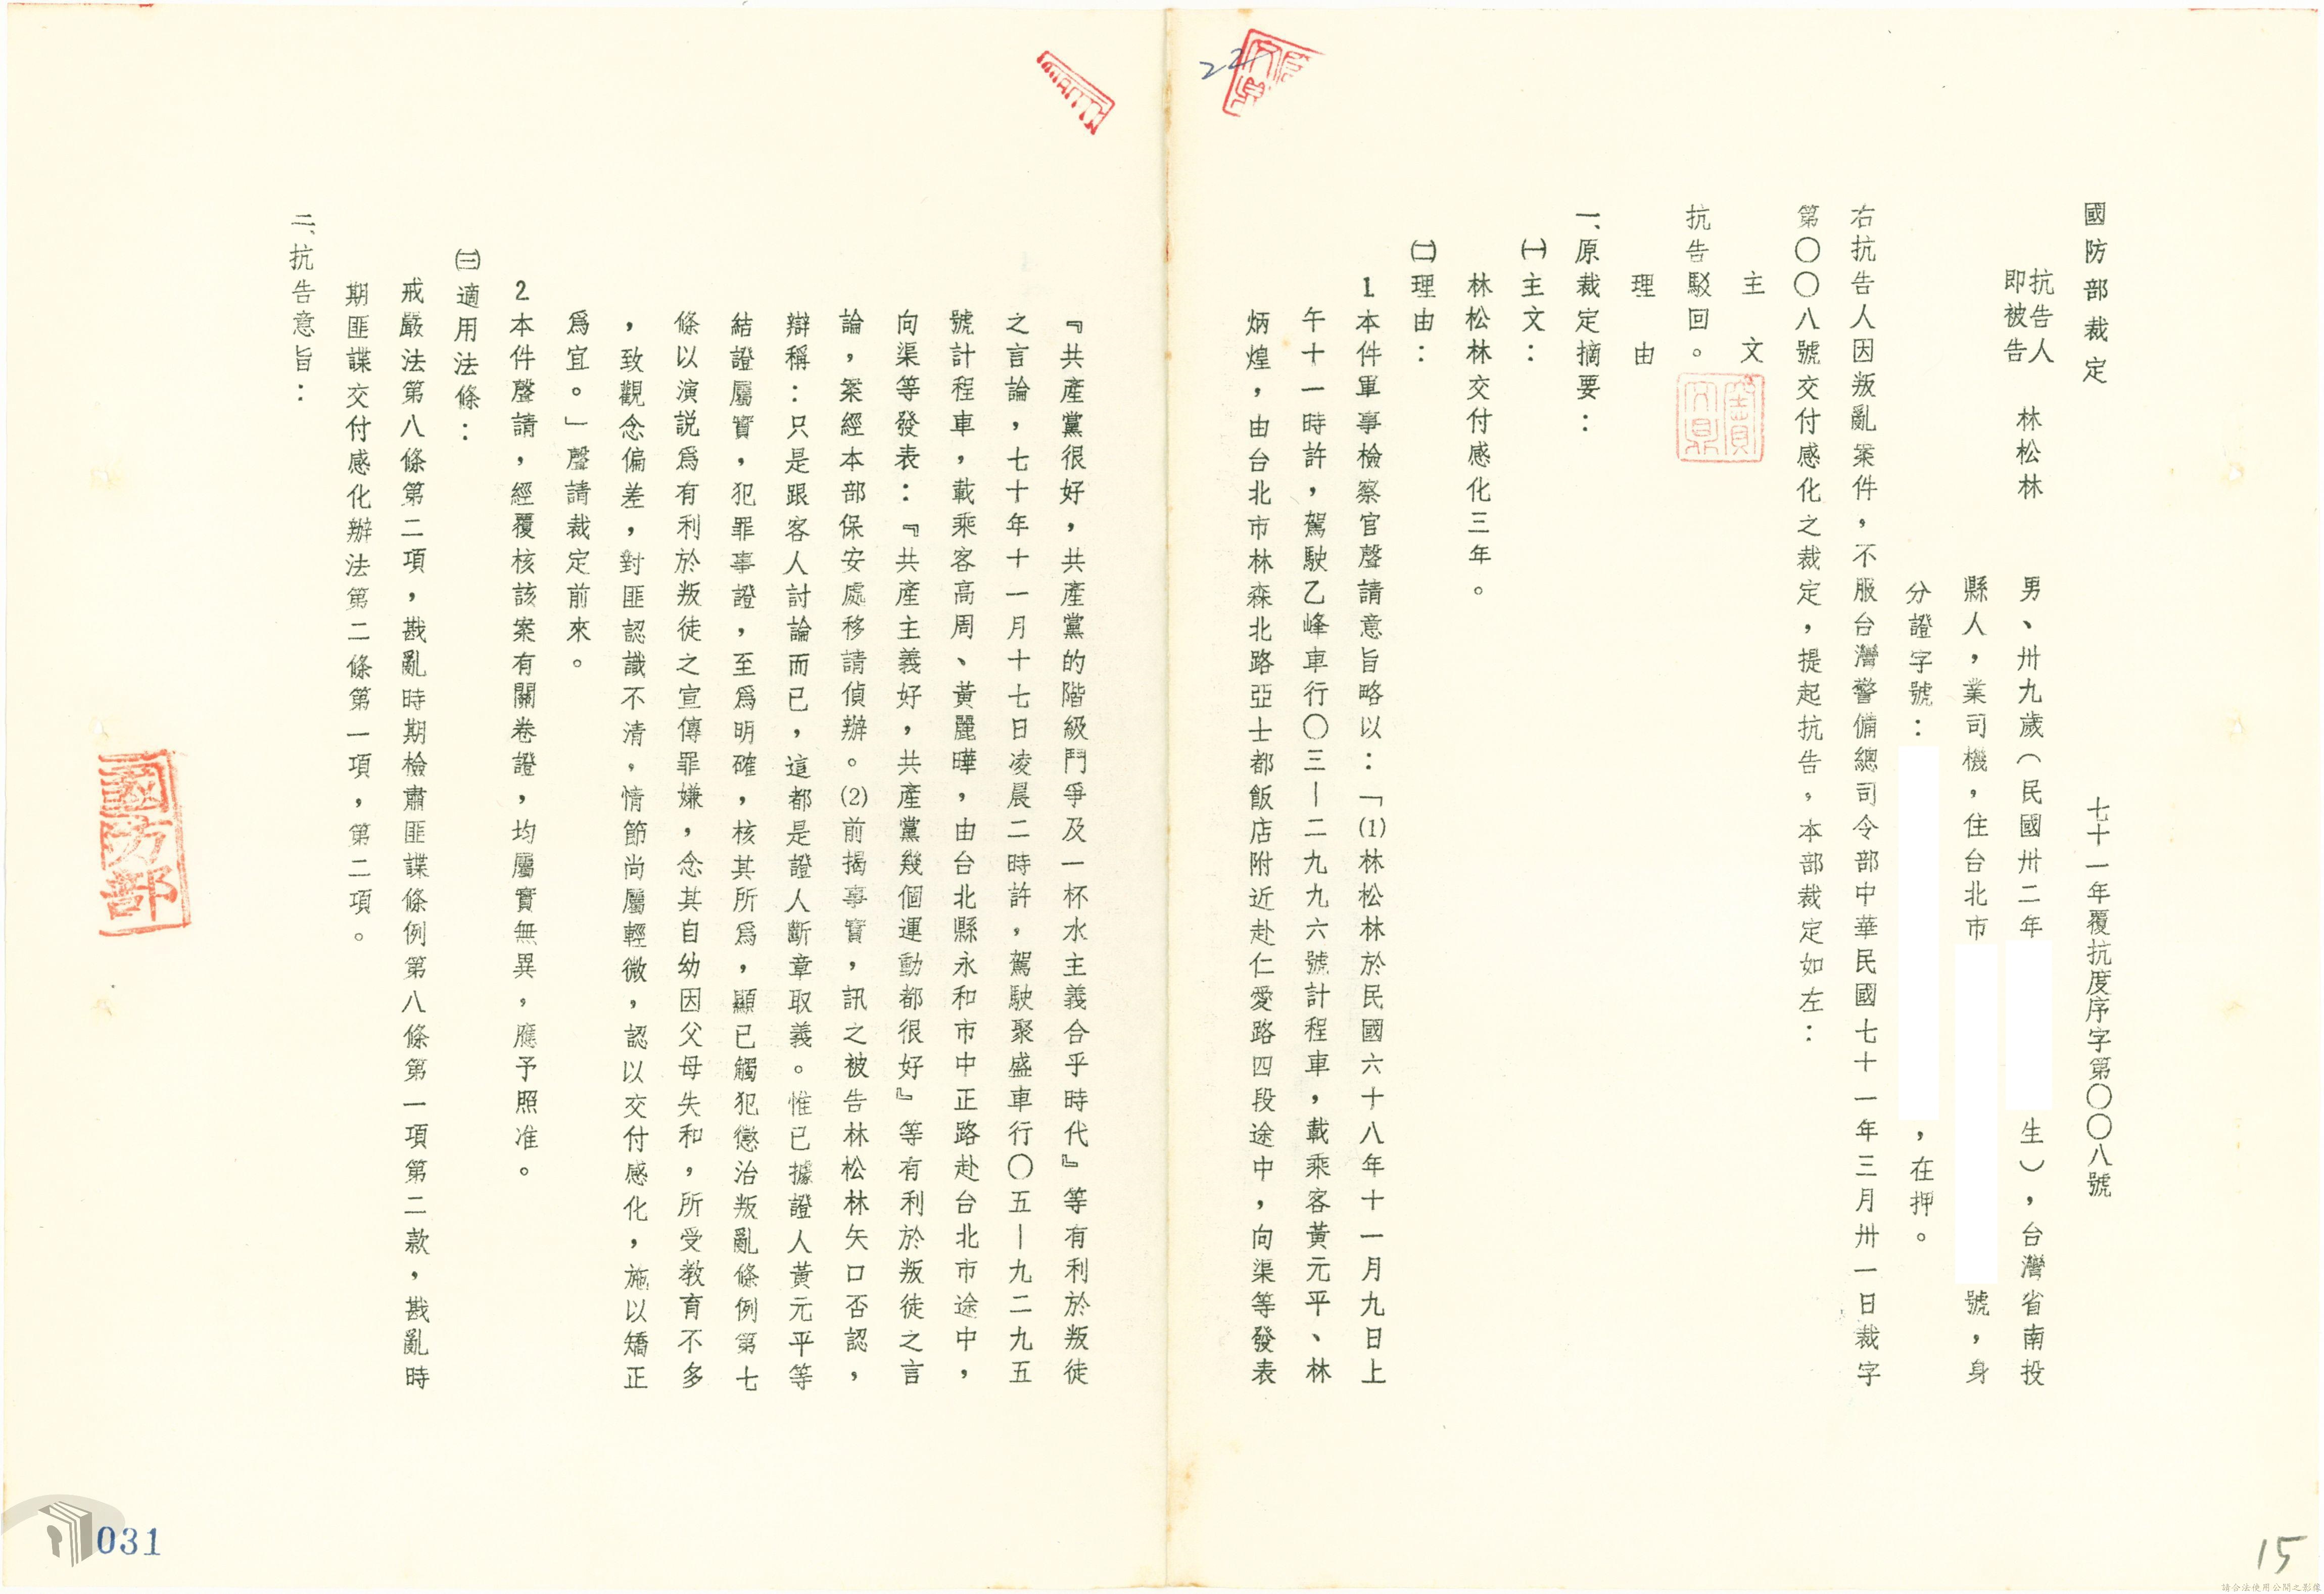 國防部裁定
七十一年覆抗度序字第〇〇八號
抗告人
即被告
林松林
男、卅九歲（民國卅二年
生），台灣省南投
縣人，業司機，住台北市
號，身
分證字號：
，在押。
右抗告人因叛亂案件，不服台灣警備總司令部中華民國七十一年三月卅一日裁字
第〇〇八號交付感化之裁定，提起抗告，本部裁定如左：
主文
抗告駁回。
理由
一、原裁定摘要：
㈠主文：
林松林交付感化三年。
㈡理由：
1本件軍事檢察官聲請意旨略以：「(1)林松林於民國六十八年十一月九日上
午十一時許，駕駛乙峰車行〇三—二九九六號計程車，載乘客黃元平、林
炳煌，由台北市林森北路亞士都飯店附近赴仁愛路四段途中，向渠等發表
『共產黨很好，共產黨的階級鬥爭及一杯水主義合乎時代』等有利於叛徒
之言論，七十年十一月十七日凌晨二時許，駕駛聚盛車行〇五—九二九五
號計程車，載乘客高周、黃麗曄，由台北縣永和市中正路赴台北市途中，
向渠等發表：『共產主義好，共產黨幾個運動都很好』等有利於叛徒之言
論，案經本部保安處移請偵辦。(2)前揭事實，訊之被告林松林矢口否認，
辯稱：只是跟客人討論而已，這都是證人斷章取義。惟已據證人黃元平等
結證屬實，犯罪事證，至為明確，核其所為，顯已觸犯懲治叛亂條例第七
條以演説為有利於叛徒之宣傳罪嫌，念其自幼因父母失和，所受教育不多
，致觀念偏差，對匪認識不清，情節尚屬輕微，認以交付感化，施以矯正
為宜。」聲請裁定前來。
2本件聲請，經覆核該案有關卷證，均屬實無異，應予照准。
㈢適用法條：
戒嚴法第八條第二項，戡亂時期檢肅匪諜條例第八條第一項第二款，戡亂時
期匪諜交付感化辦法第二條第一項，第二項。
二、抗告意旨：
國防部
22
031
15
請合法使用公開之影像